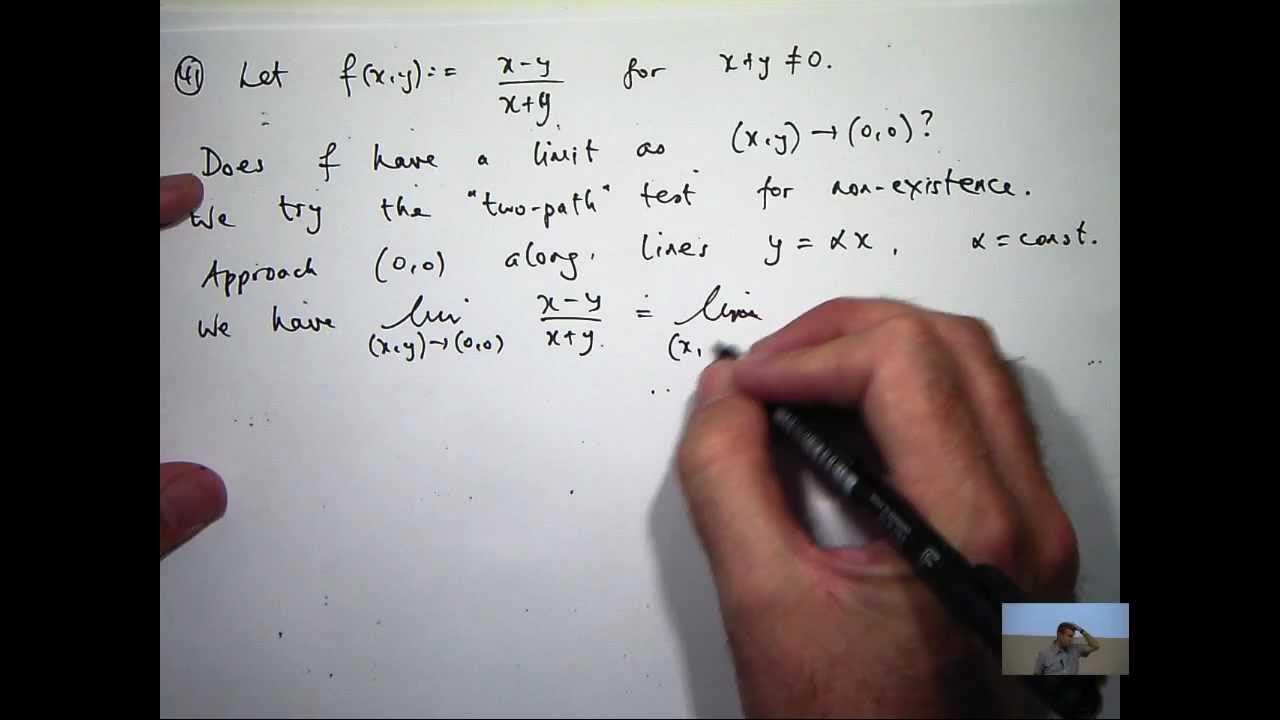 41 Let f(x,y) := x-y / x+y for x+y ≠ 0.
Does f have a limit as (x,y) → (0,0)?
We try the "two-path" test for non-existence.
Approach (0,0) along lines y = αx, α = const.
We have lim (x,y)→(0,0) x-y / x+y = lim (x,